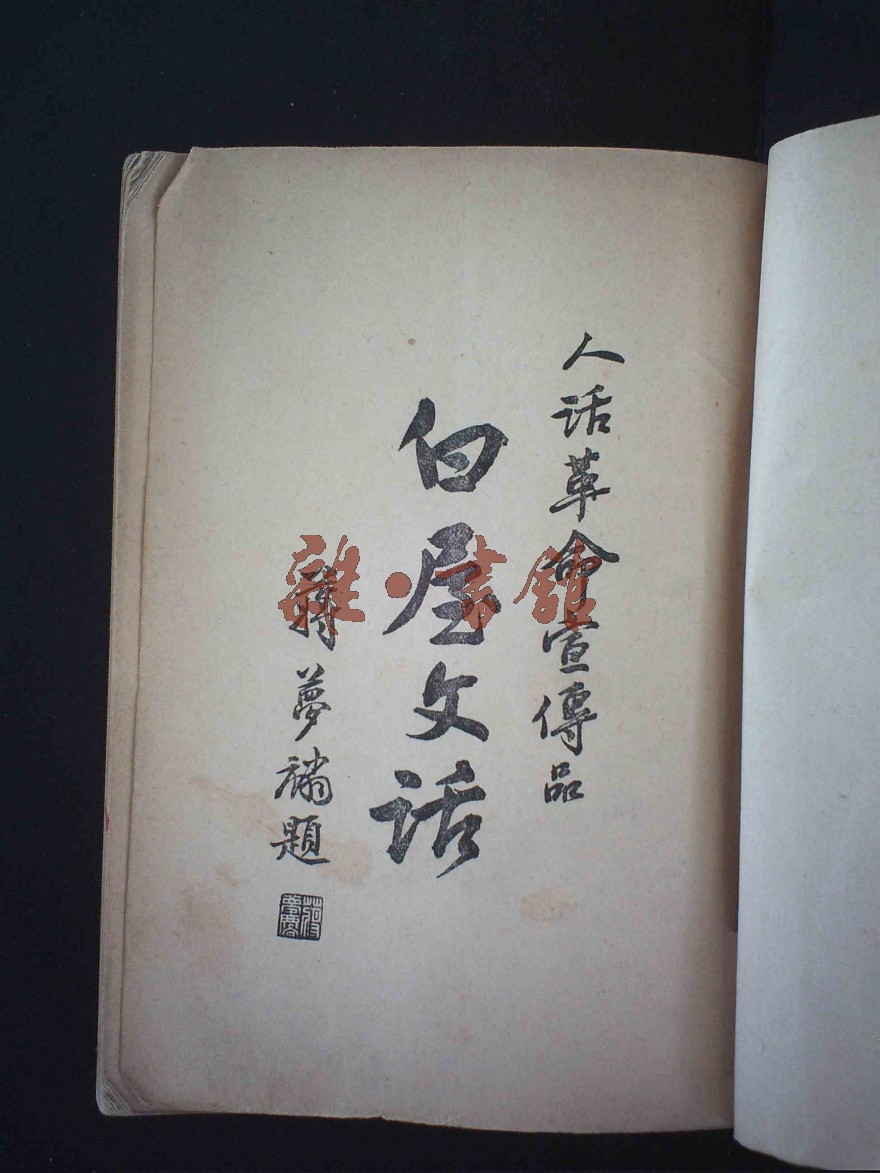 人话革命宣傳品
白屋文话
蔣夢麟題
雜·書館